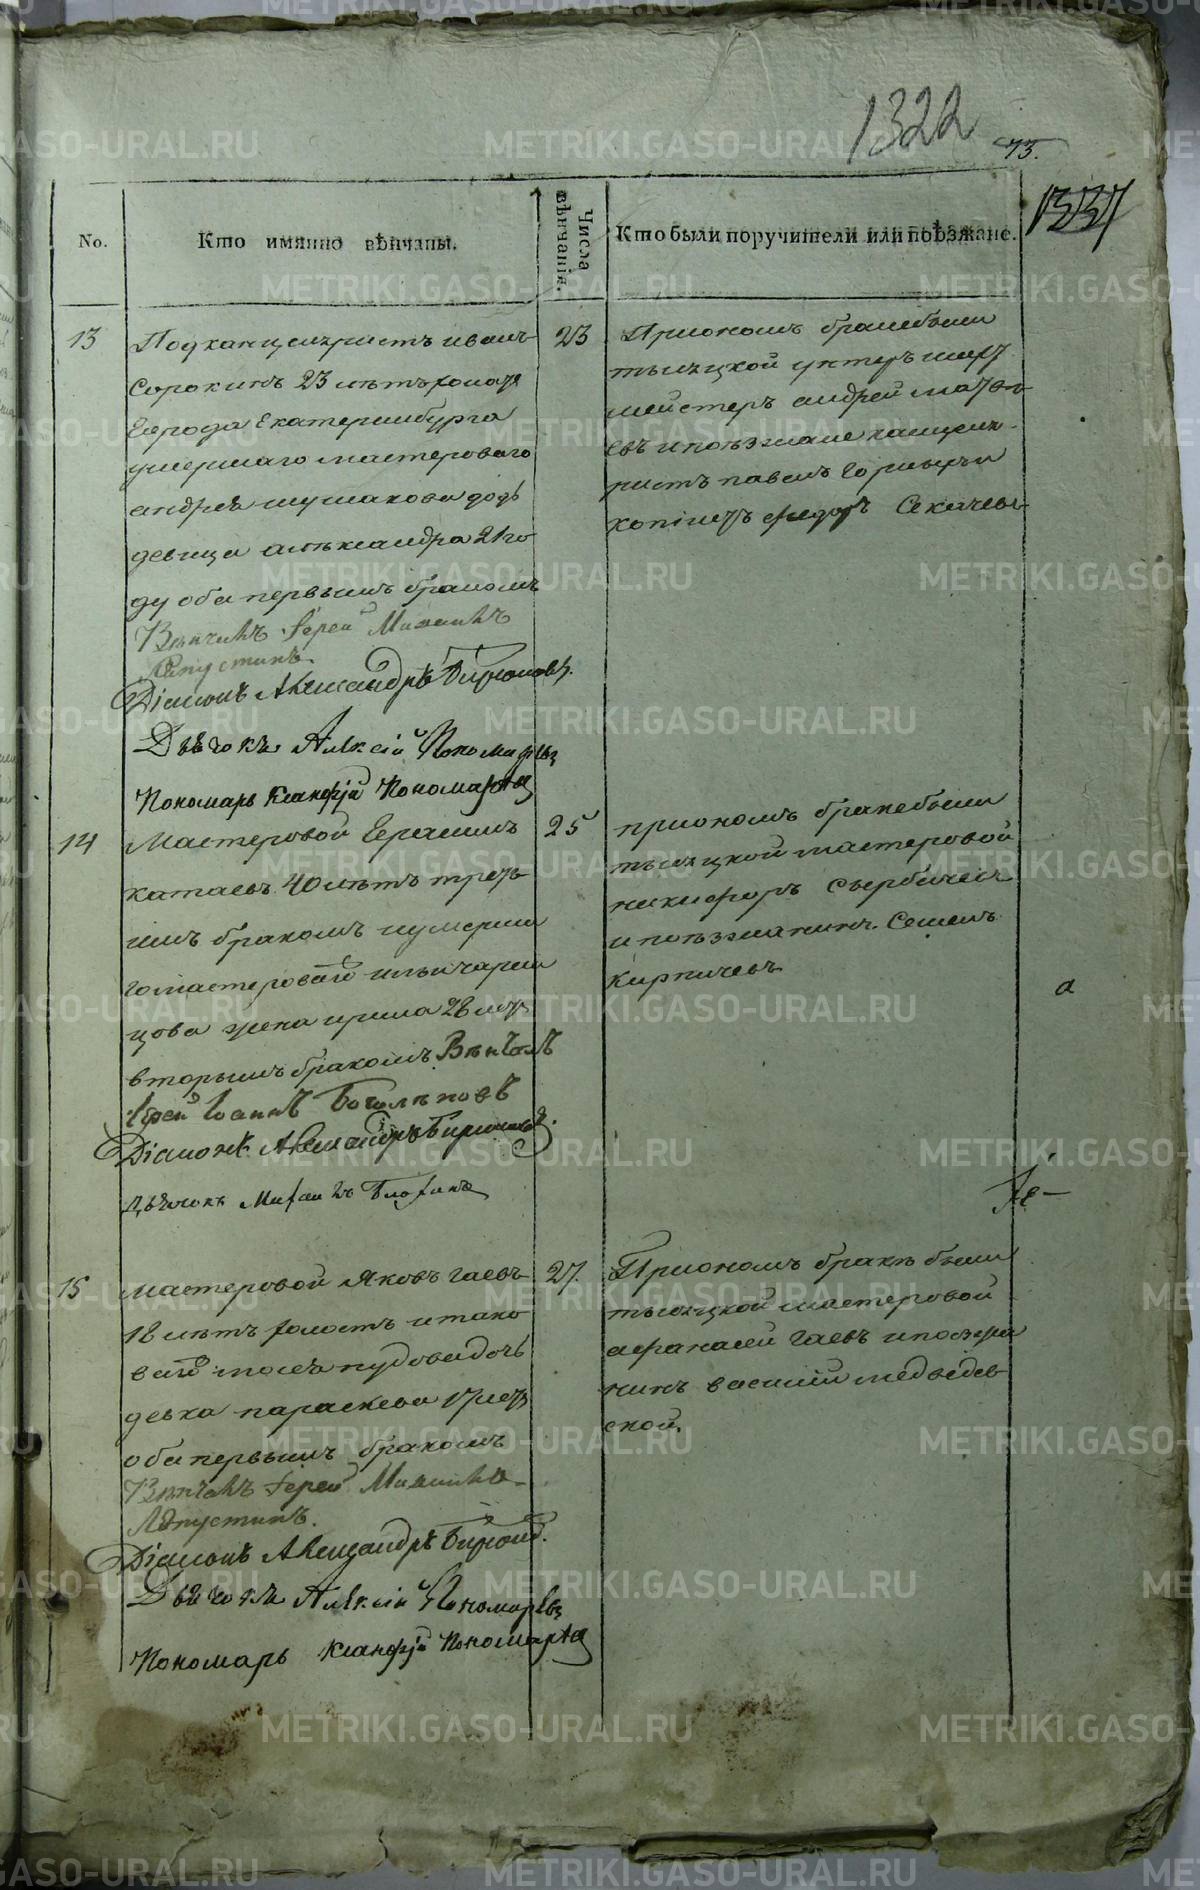 1322
73.
1337
No.
Кто имянно вѣнчаны.
Числа вѣнчанія.
Кто были поручители или поѣзжане.
13
Подканцеляристъ иванъ
Сорокинъ 23 лѣтъ холостъ
города Екатеринбурга
умершаго мастероваго
андрея шушакова дочь
девица александра 21 го
ду оба первымъ бракомъ
Вѣнчалъ Іерей Михаилъ
Діаконъ Александръ
Дьячокъ Алексій Пономаревъ
Пономарь Ксанфій Пономаревъ
23
При ономъ браке были
тысяцкой унтеръ шихт
мейстеръ андрей матве
евъ и поезжане канцеля
ристъ павелъ
копіистъ федоръ Секачевъ
14
Мастеровой Герасимъ
катаевъ 40 лѣтъ треть
имъ бракомъ и умерша
го мастероваго ильи
цова жена ирина 28 летъ
вторымъ бракомъ Вѣнчалъ
Іерей Іоаннъ Боголѣповъ
Діаконъ Александръ
Дьячокъ Михаилъ
25
при ономъ браке были
тысяцкой мастеровой
никифоръ
и поѣзжанинъ Семенъ
Кирпичевъ
а
15
мастеровой Яковъ гаевъ
18 лѣтъ холостъ и тако
ваго дочь
девка параскева 17 летъ
оба первымъ бракомъ
Вѣнчалъ Іерей Михаилъ
Діаконъ Александръ
Дьячокъ Алексій Пономаревъ
Пономарь Ксанфій Пономаревъ
27.
При ономъ бракѣ были
тысяцкой мастеровой
афанасей гаевъ и поезжа
нинъ василий медведев
ской.
METRIKI.GASO-URAL.RU